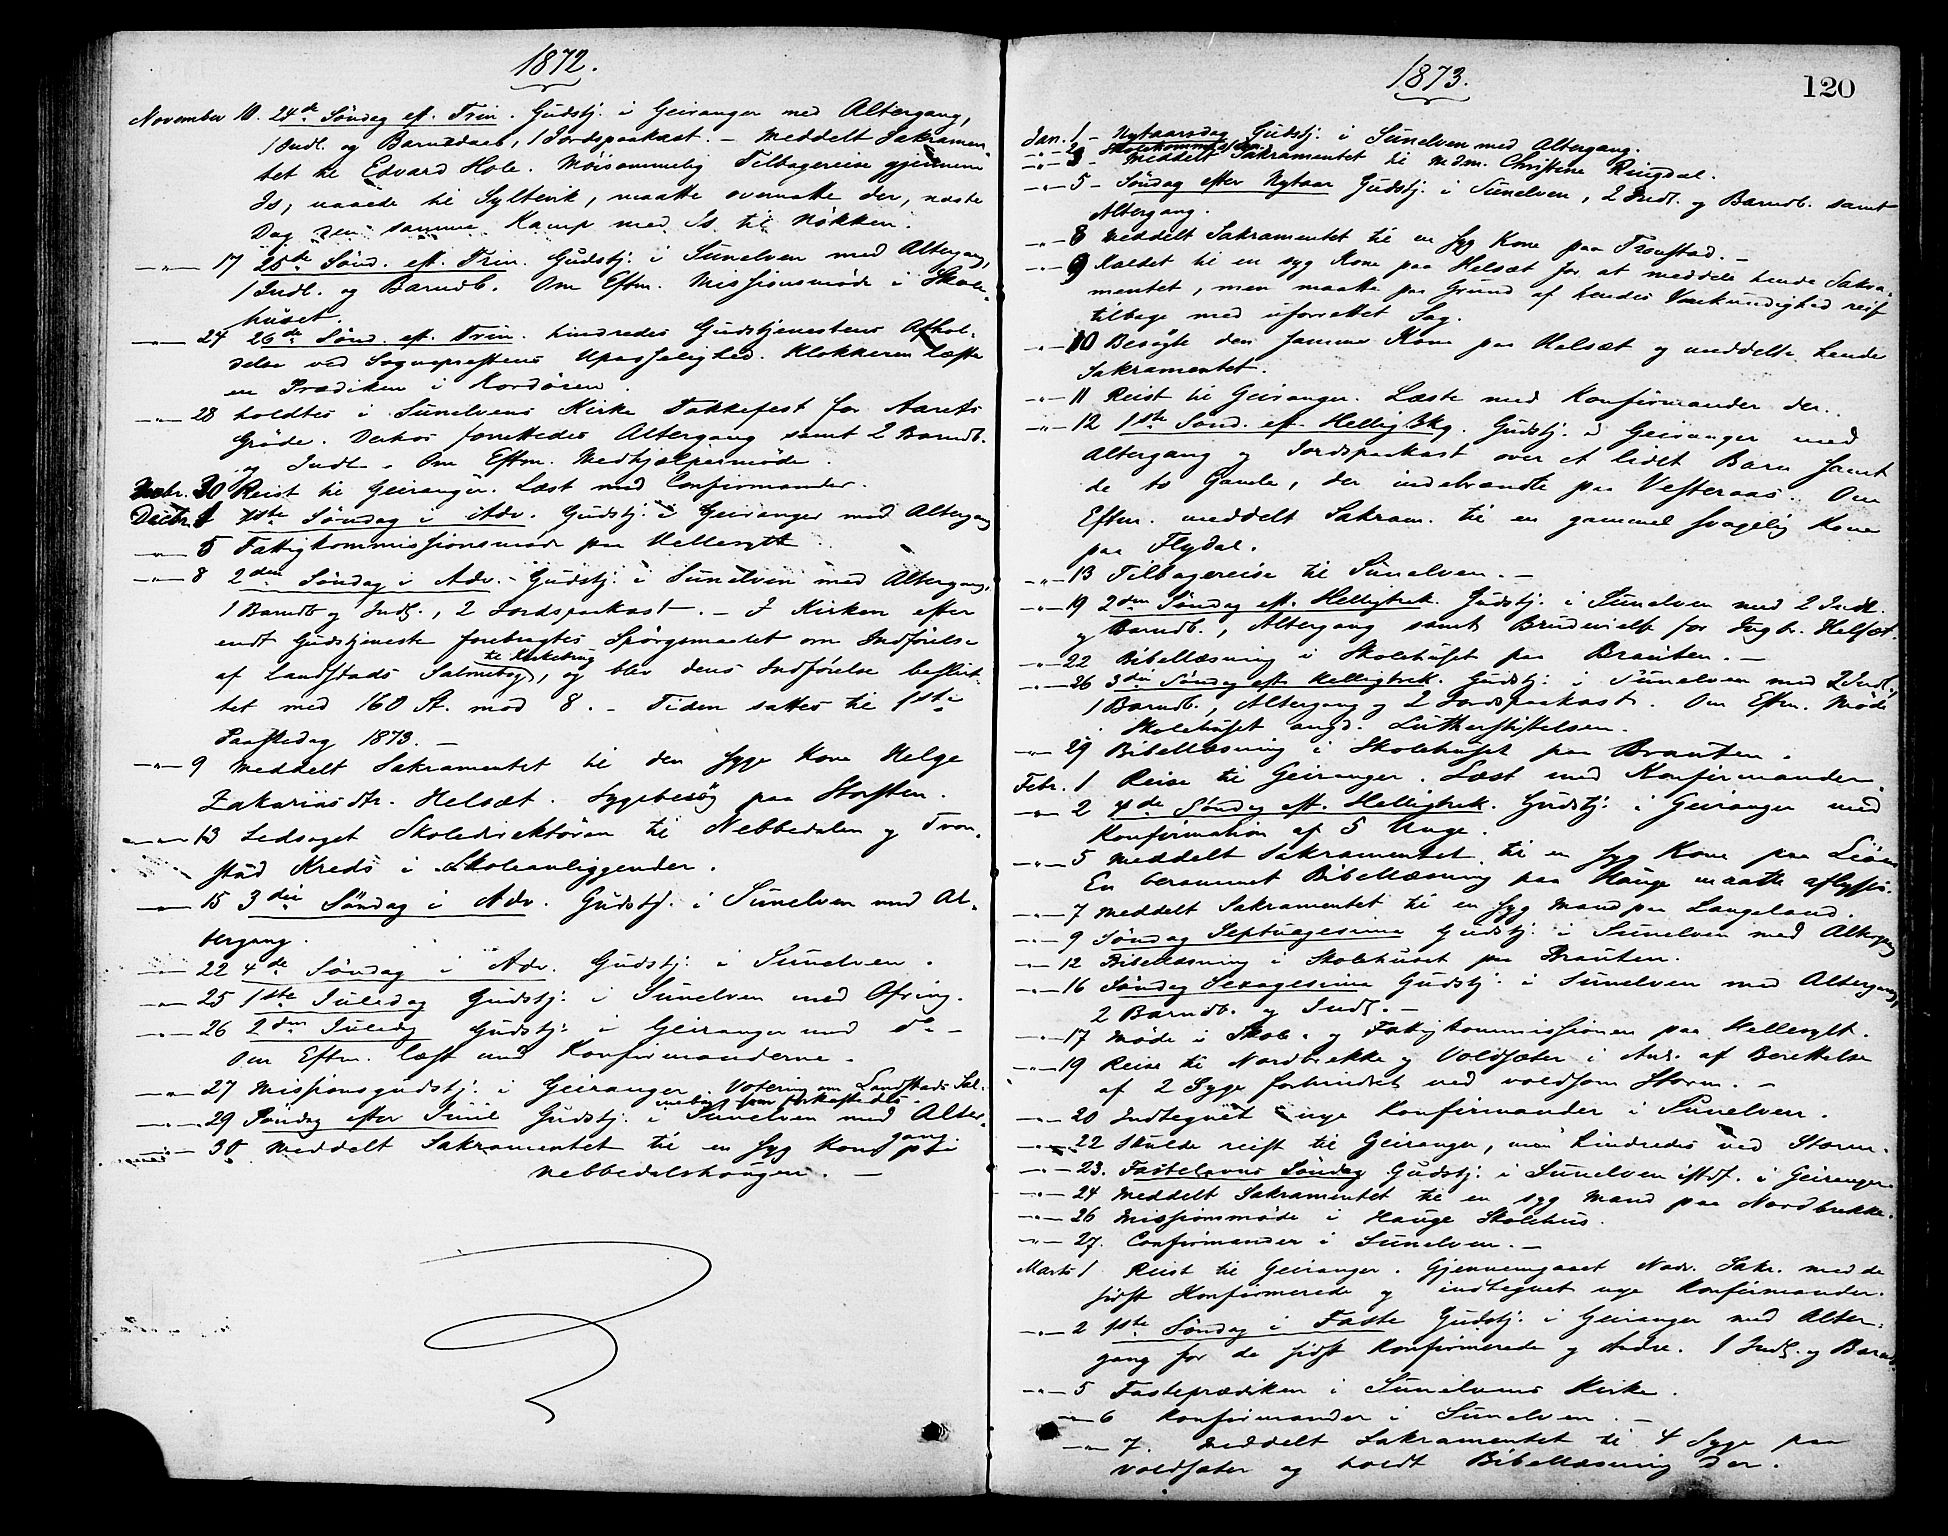 1872.
November 10. 24de Søndag eft. Trin. Gudstj. i Geiranger med Altergang,
1 Indl. og Barnedaab, 1 Jordspaakast. – Meddelt Sakramen-
tet til Edvard Hole. Møisommelig Tilbagereise gjennem
Is, naaede til Syltevik, maatte overnatte der, næste
Dag den samme Kamp med Is til Nøkken.
–"– 17 25de Sønd. eft. Trin. Gudstj. i Sunelven med Altergang,
1 Indl. og Barndb. Om Eftm. Missionsmøde i Skole-
huset.
–"– 24 26de Sønd. eft. Trin. hindredes Gudstjenestens Afhol-
delse ved Sognepræstens Upasselighed. Klokkeren læste
en Prædiken i Kordøren.
–"– 28 holdtes i Sunelvens Kirke Takkefest for Aarets
Grøde. Derhos forrettedes Altergang samt 2 Barndb.
og Indl. Om Eftm. Medhjælpermøde.
Nvbr. 30 Reist til Geiranger. Læst med Confirmander.
Decbr. 1 1ste Søndag i Adv. Gudstj. i Geiranger med Altergang
–"– 5 Fattigkommissionsmøde paa Hellesylt.
–"– 8 2den Søndag i Adv. – Gudstj. i Sunelven med Altergang,
1 Barndb og Indl., 2 Jordspaakast. – I Kirken efter
endt Gudstjeneste forebragtes Spørgsmaalet om Indførelse
af Landstads Salmebog til Kirkebrug, og blev dens Indførelse beslut-
tet med 160 St. mod 8. – Tiden sattes til 1ste
Paaskedag 1873. –
–"– 9 Meddelt Sakramentet til den syge Kone Helge
Zakariasdtr. Helsæt. Sygebesøg paa Stoften.
–"– 13 Ledsaget Skoledirektøren til Nebbedalen og Tron-
stad Kreds i Skoleanliggender.
–"– 15 3die Søndag i Adv. Gudstj. i Sunelven med Al-
tergang.
–"– 22 4de Søndag i Adv. Gudstj. i Sunelven.
–"– 25 1ste Juledag Gudstj. i Sunelven med Ofring.
–"– 26 2den Juledag Gudstj. i Geiranger med do –
Om Eftm. læst med Konfirmanderne.
–"– 27 Missionsgudstj. i Geiranger. Votering om Landstads Sal-
mebog som forkastedes.
–"– 29 Søndag efter Juul Gudstj. i Sunelven med Alter-
gang.
–"– 30 Meddelt Sakramentet til en syg Kone paa
Nebbedalshougen. –
1873.
120
Jan. 1 – Nytaarsdag Gudstj. i Sunelven med Altergang.
–"– 2 Skolekommission.
–"– 3 – Meddelt Sakramentet til Mdm. Christine Ringdal.
–"– 5 – Søndag efter Nytaar Gudstj. i Sunelven, 2 Indl. og Barndb. samt
Altergang.
–"– 8 Meddelt Sakramentet til en syg Kone paa Tronstad. –
–"– 9 Kaldet til en syg Kone paa Helsæt for at meddele hende Sakra-
mentet, men maatte paa Grund af hendes Vankundighed reise
tilbage med uforrettet Sag.
–"– 10 Besøgte den samme Kone paa Helsæt og meddelte hende
Sakramentet.
–"– 11 Reist til Geiranger. Læste med Konfirmander der.
–"– 12 1ste Sønd. eft. Hellig3kg. Gudstj. i Geiranger med
Altergang og Jordspaakast over et lidet Barn samt
de to Gamle, der indebrændte paa Vesteraas. Om
Eftm. meddelt Sakram. til en gammel svagelig Kone
paa Flydal.
–"– 13 Tilbagereise til Sunelven. –
–"– 19 2den Søndag eft. Helligtrek. Gudstj. i Sunelven med 2 Indl.
og Barndb., Altergang samt Brudevielse for Ingbr. Helsæt.
–"– 22 Bibellæsning i Skolehuset paa Brauten. –
–"– 26 3die Søndag eft. Helligtrek. Gudstj. i Sunelven med 2 Indl.,
1 Barndb., Altergang og 2 Jordspaakast. Om Eftm. Møde i
Skolehuset angd. Lutherstiftelsen.
–"– 29 Bibellæsning i Skolehuset paa Brauten.
Febr. 1 Reise til Geiranger. Læst med Konfirmander
–"– 2 4de Søndag eft. Helligtrek. Gudstj. i Geiranger med
Konfirmation af 5 Unge.
–"– 5 Meddelt Sakramentet til en syg Kone paa Liøen
En berammet Bibellæsning paa Hauge maatte aflyses.
–"– 7 Meddelt Sakramentet til en syg Mand paa Langeland.
–"– 9 Søndag Septuagesima Gudstj. i Sunelven med Altergang
–"– 12 Bibellæsning i Skolehuset paa Brauten.
–"– 16 Søndag Sexagesima Gudstj. i Sunelven med Altergang,
2 Barndb. og Indl. –
–"– 17 Møde i Skole- og Fattigkommissionen paa Hellesylt.
–"– 19 Reise til Nordbrekke og Voldsæter i Anl. af Berettelse
af 2 Syge forhindret ved voldsom Storm. –
–"– 20 Indtegnet nye Konfirmander i Sunelven.
–"– 22 Skulde reist til Geiranger, men hindredes ved Storm.
–"– 23. Fastelavns Søndag Gudstj. i Sunelven istdf. i Geiranger.
–"– 24 Meddelt Sakramentet til en syg Mand paa Nordbrekke.
–"– 26 Missionsmøde i Hauge Skolehus.
–"– 27. Confirmander i Sunelven. –
Marts 1 Reist til Geiranger. Gjennemgaaet Nadv. Sakr. med de
sidst Konfirmerede og indtegnet nye Konfirmander.
–"– 2 1ste Søndag i Faste Gudstj. i Geiranger med Alter-
gang for de sidst Konfirmerede og Andre. 1 Indl. og Barndb.
–"– 5 Fasteprædiken i Sunelvens Kirke.
–"– 6 Konfirmander i Sunelven. –
–"– 7. Meddelt Sakramentet til 4 Syge paa
Voldsæter og holdt Bibellæsning der.